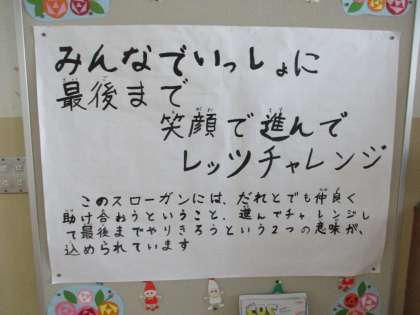 みんなでいっしょに
最後まで
笑顔で進んで
レッツチャレンジ
このスローガンには、だれとでも仲良く
助け合おうということ、進んでチャレンジし
て最後までやりきろうという2つの意味が、
込められています